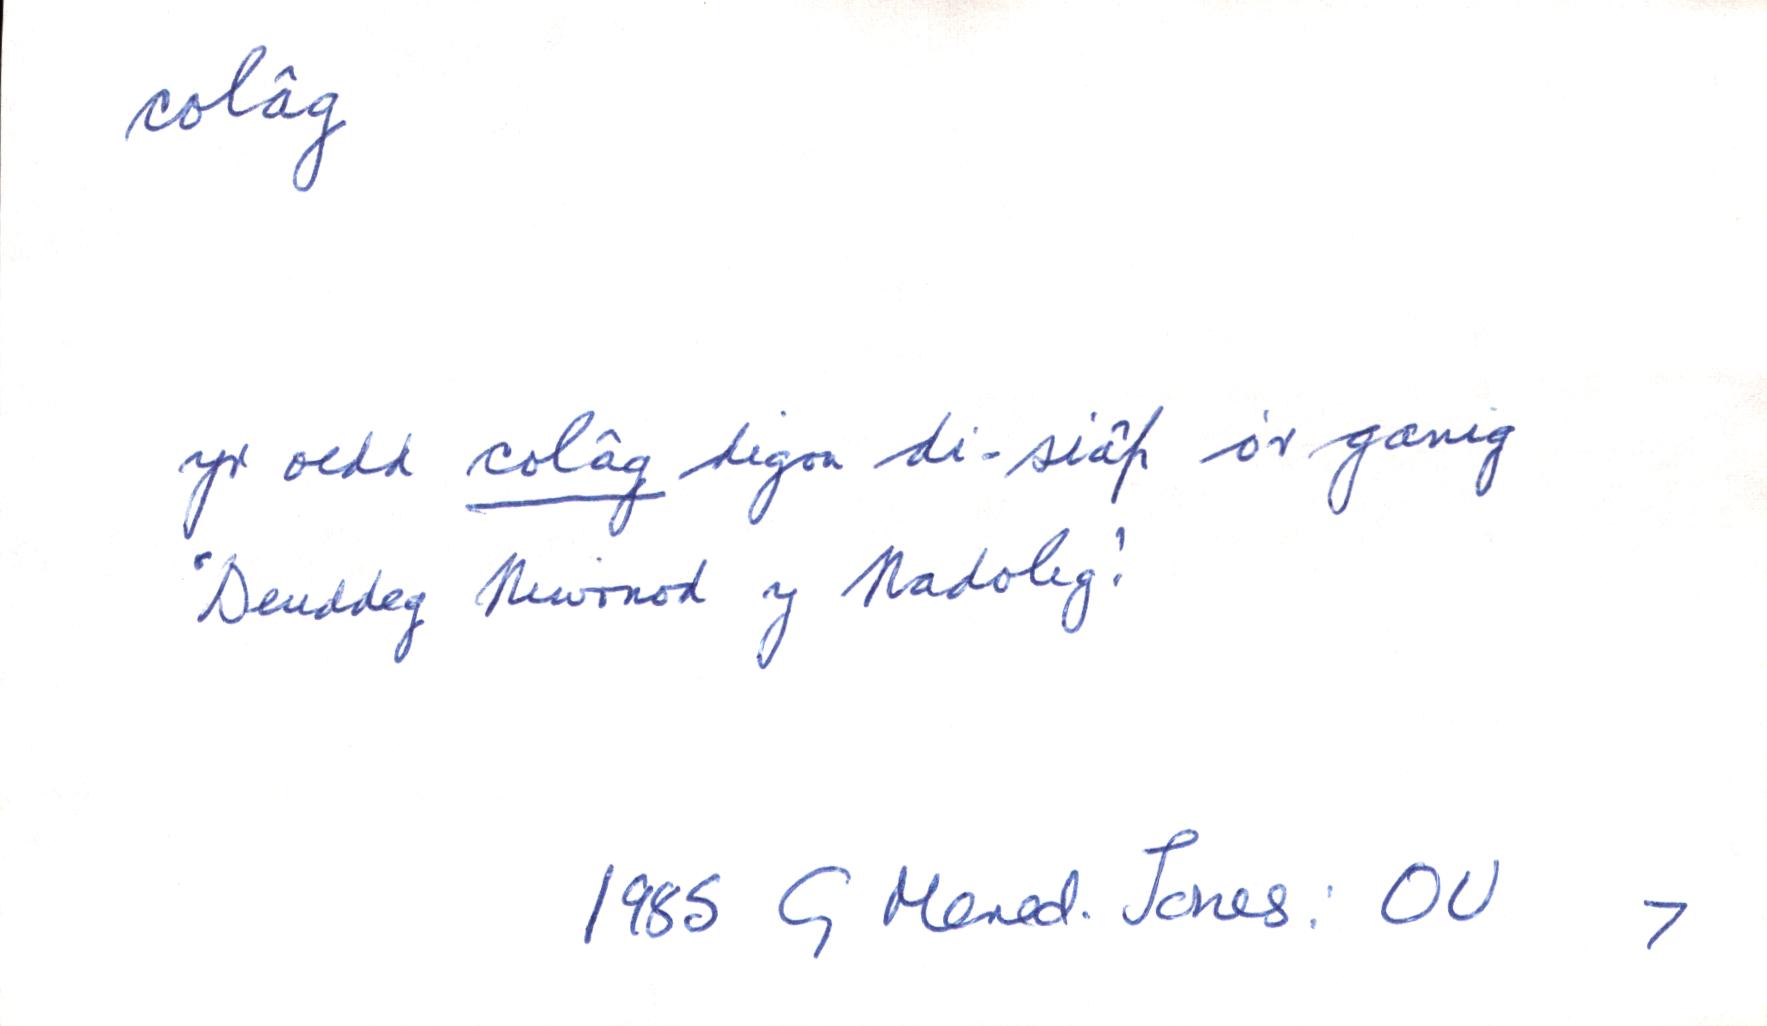 colâg
yr oedd colâg digon di-siâp o'r ganig
"Deuddeg Niwrnod y Nadolig".
1985 G Mered. Jones: OU 7